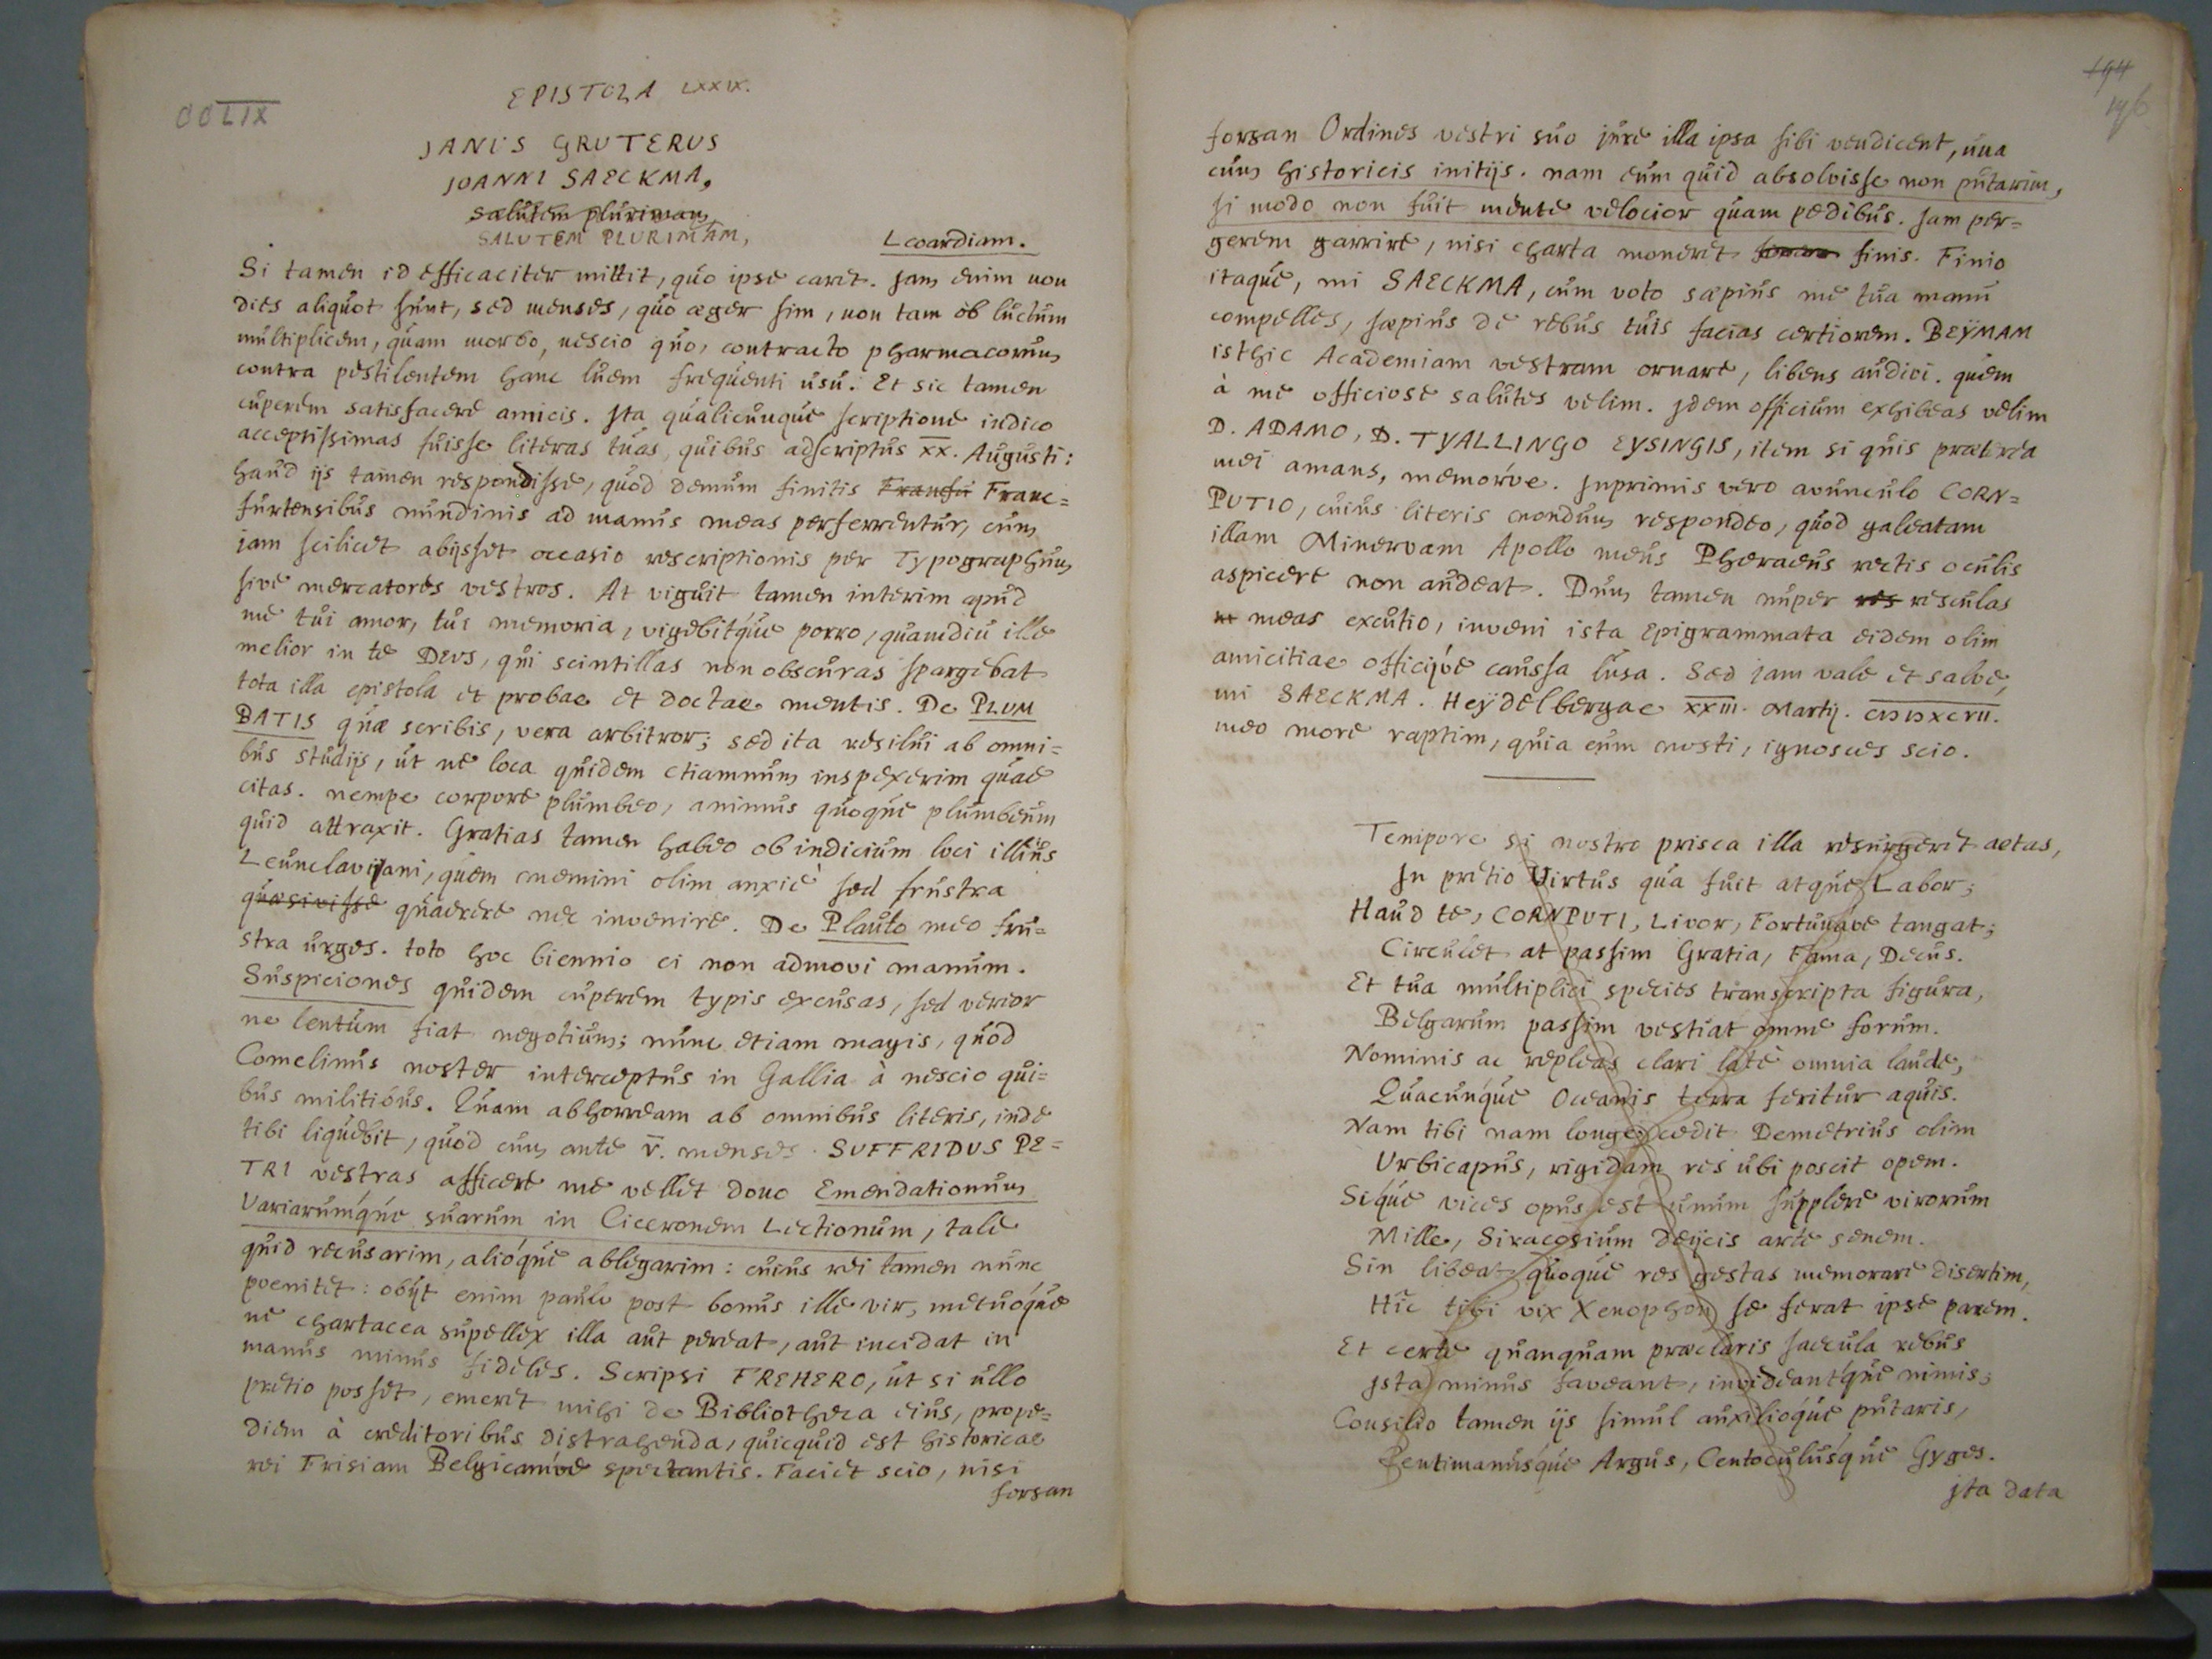 CCLIX
EPISTOLA LXXIX.
JANUS GRUTERUS
JOANNI SAECKMA,
salutem plurimam
SALUTEM PLURIMAM,
Leoardiam.
Si tamen id efficaciter mittit, quo ipse caret. Jam enim non
dies aliquot sunt, sed menses, quo æger sim, non tam ob luctum
multiplicem, quam morbo, nescio quo, contracto pharmacorum
contra pestilentem hanc luem frequenti usu. Et sic tamen
cuperem satisfacere amicis. Ita qualicunque scriptione indico
acceptissimas fuisse literas tuas, quibus adscriptus XX. Augusti:
haud ijs tamen respondisse, quod demum finitis Francfu Franc=
furtensibus nundinis ad manus meas perferrentur, cum
jam scilicet abijsset occasio rescriptionis per Typographum
sive mercatores vestros. At viguit tamen interim apud
me tui amor, tui memoria, vigebitque porro, quamdiu ille
melior in te DEUS, qui scintillas non obscuras spargebat
tota illa epistola et probae et doctae mentis. De PLUM
BATIS quæ scribis, vera arbitror; sed ita resilui ab omni=
bus studijs, ut ne loca quidem etiamnum inspexerim quae
citas. nempe corpore plumbeo, animus quoque plumbeum
quid attraxit. Gratias tamen habeo ob indicium loci illius
Leunclaviani, quem memini olim anxiè sed frustra
quæsivisse quaerere nec invenire. De Plauto meo fru=
stra urges. toto hoc biennio ei non admovi manum.
Suspiciones quidem cuperem typis excusas, sed vereor
ne lentum fiat negotium; nunc etiam magis, quod
Comelinus noster interceptus in Gallia à nescio qui=
bus militibus. Quam abhorream ab omnibus literis, inde
tibi liquebit, quod cum ante V. menses SUFFRIDUS PE=
TRI vestras afficere me vellet dono Emendationum
Variarumque suarum in Ciceronem Lectionum, tale
quid recusarim, alioque ablegarim: cuius rei tamen nunc
poenitet: obijt enim paulo post bonus ille vir, metuoque
ne chartacea supellex illa aut pereat, aut incidat in
manus minus fideles. Scripsi FREHERO, ut si ullo
pretio posset, emeret mihi de Bibliotheca eius, prope=
diem à creditoribus distrahenda, quicquid est historicae
rei Frisiam Belgicamve spectantis. Faciet scio, nisi
forsan
194
196
forsan Ordines vestri suo jure illa ipsa sibi vendicent, una
cum historicis initijs. nam eum quid absolvisse non putarim,
si modo non fuit mente velocior quam pedibus. Jam per=
gerem garrire, nisi charta moneret finis. Finio
itaque, mi SAECKMA, cum voto sæpius me tua manu
compelles, sæpius de rebus tuis facias certiorem. BEŸMAM
isthic Academiam vestram ornare, libens audivi. quem
à me officiose salutes velim. Idem officium exhibeas velim
D. ADAMO, D. TYALLINGO EYSINGIS, item si quis præterea
mei amans, memorve. Inprimis vero avunculo CORN=
PUTIO, cuius literis nondum respondeo, quod galeatam
illam Minervam Apollo meus Pheraeus rectis oculis
aspicere non audeat. Dum tamen nuper res resculas
m meas excutio, inveni ista Epigrammata eidem olim
amicitiae officijve caussa lusa. Sed jam vale et salve,
mi SAECKMA. Heÿdelbergae XXIII. Martij. CIƆIƆXCVII.
meo more raptim, quia eum nosti, ignosces scio.
Tempore si nostro prisca illa resurgeret aetas,
In pretio Virtus qua fuit atque Labor;
Haud te, CORNPUTI, Livor, Fortunave tangat;
Circulet at passim Gratia, Fama, Decus.
Et tua multiplici species transcripta figura,
Belgarum passim vestiat omne forum.
Nominis ac repleas clari latè omnia laude,
Quacunque Oceanis terra feritur aquis.
Nam tibi nam longe cedit Demetrius olim
Urbicapus, rigidam res ubi poscit opem.
Sique vices opus est unum supplere virorum
Mille, Siracosium deijcis arte senem.
Sin libeat quoque res gestas memorare disertim,
Hîc tibi vix Xenophon se ferat ipse parem.
Et certe quanquam praeclaris saecula rebus
Ista minus faveant, invideantque nimis;
Consilio tamen ijs simul auxilioque putaris,
Centimanusque Argus, Centoculusque Gyges.
Ita data